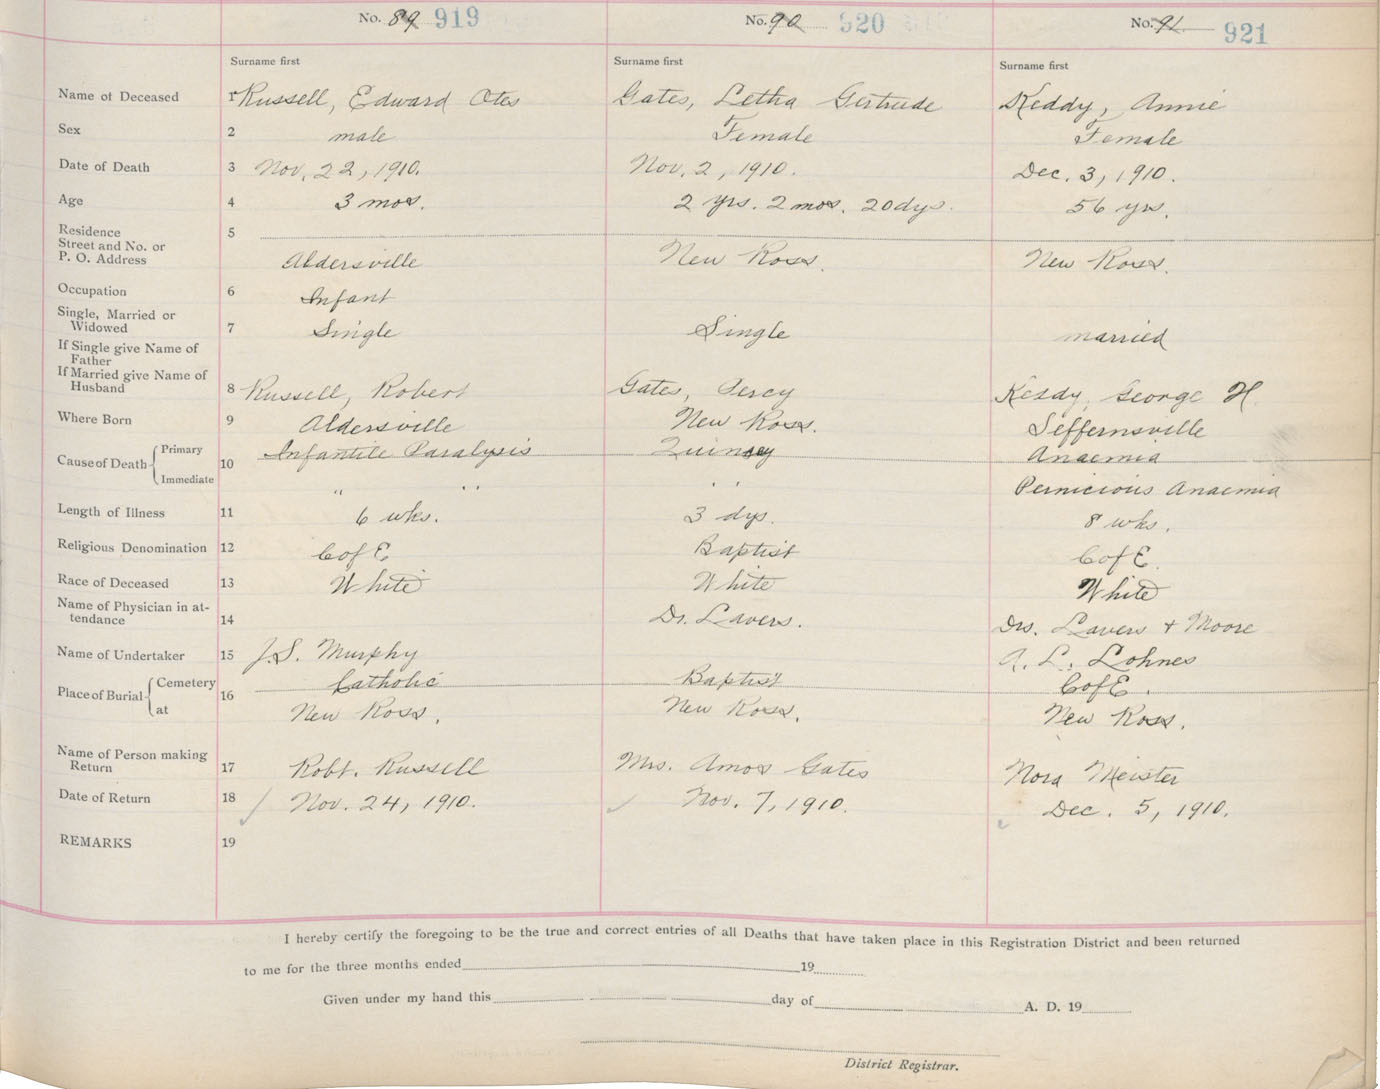 No. 89 919 No. 90 920 No. 91 921
Surname first Surname first Surname first
Name of Deceased 1 Russell, Edward Otes Gates, Letha Gertrude Keddy, Annie
Sex 2 male Female Female
Date of Death 3 Nov. 22, 1910. Nov. 2, 1910. Dec. 3, 1910.
Age 4 3 mos. 2 yrs. 2 mos. 20 dys. 56 yrs.
Residence 5
Street and No. or
P. O. Address Aldersville New Ross. New Ross.
Occupation 6 Infant
Single, Married or
Widowed 7 Single Single married
If Single give Name of
Father
If Married give Name of
Husband 8 Russell, Robert Gates, Percy Keddy, George H.
Where Born 9 Aldersville New Ross. Seffernsville
Cause of Death Primary 10 Infantile Paralysis Quinsey Anaemia
Immediate " " " Pernicious Anaemia
Length of Illness 11 6 wks. 3 dys. 8 wks.
Religious Denomination 12 C of E. Baptist C of E.
Race of Deceased 13 White White White
Name of Physician in at-
tendance 14 Dr. Lavers. Drs. Lavers + Moore
Name of Undertaker 15 J.S. Murphy A. L. Lohnes
Place of Burial Cemetery 16 Catholic Baptist C of E.
at New Ross. New Ross. New Ross.
Name of Person making
Return 17 Robt. Russell Mrs. Amos Gates Nora Meister
Date of Return 18 Nov. 24, 1910. Nov. 7, 1910. Dec. 5, 1910.
REMARKS 19
I hereby certify the foregoing to be the true and correct entries of all Deaths that have taken place in this Registration District and been returned
to me for the three months ended 19
Given under my hand this day of A. D. 19
District Registrar.